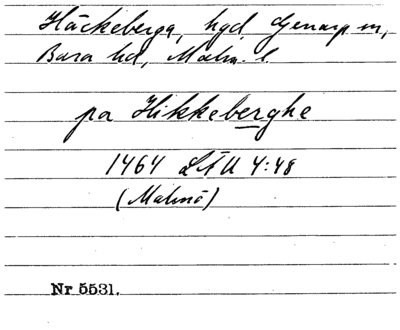 Häckeberga, hgd, Genarp sn,
Bara hd, Malm. l.
pa Hikkeberghe
1464 LÄU 4:48
(Malmö)
Nr 5531.